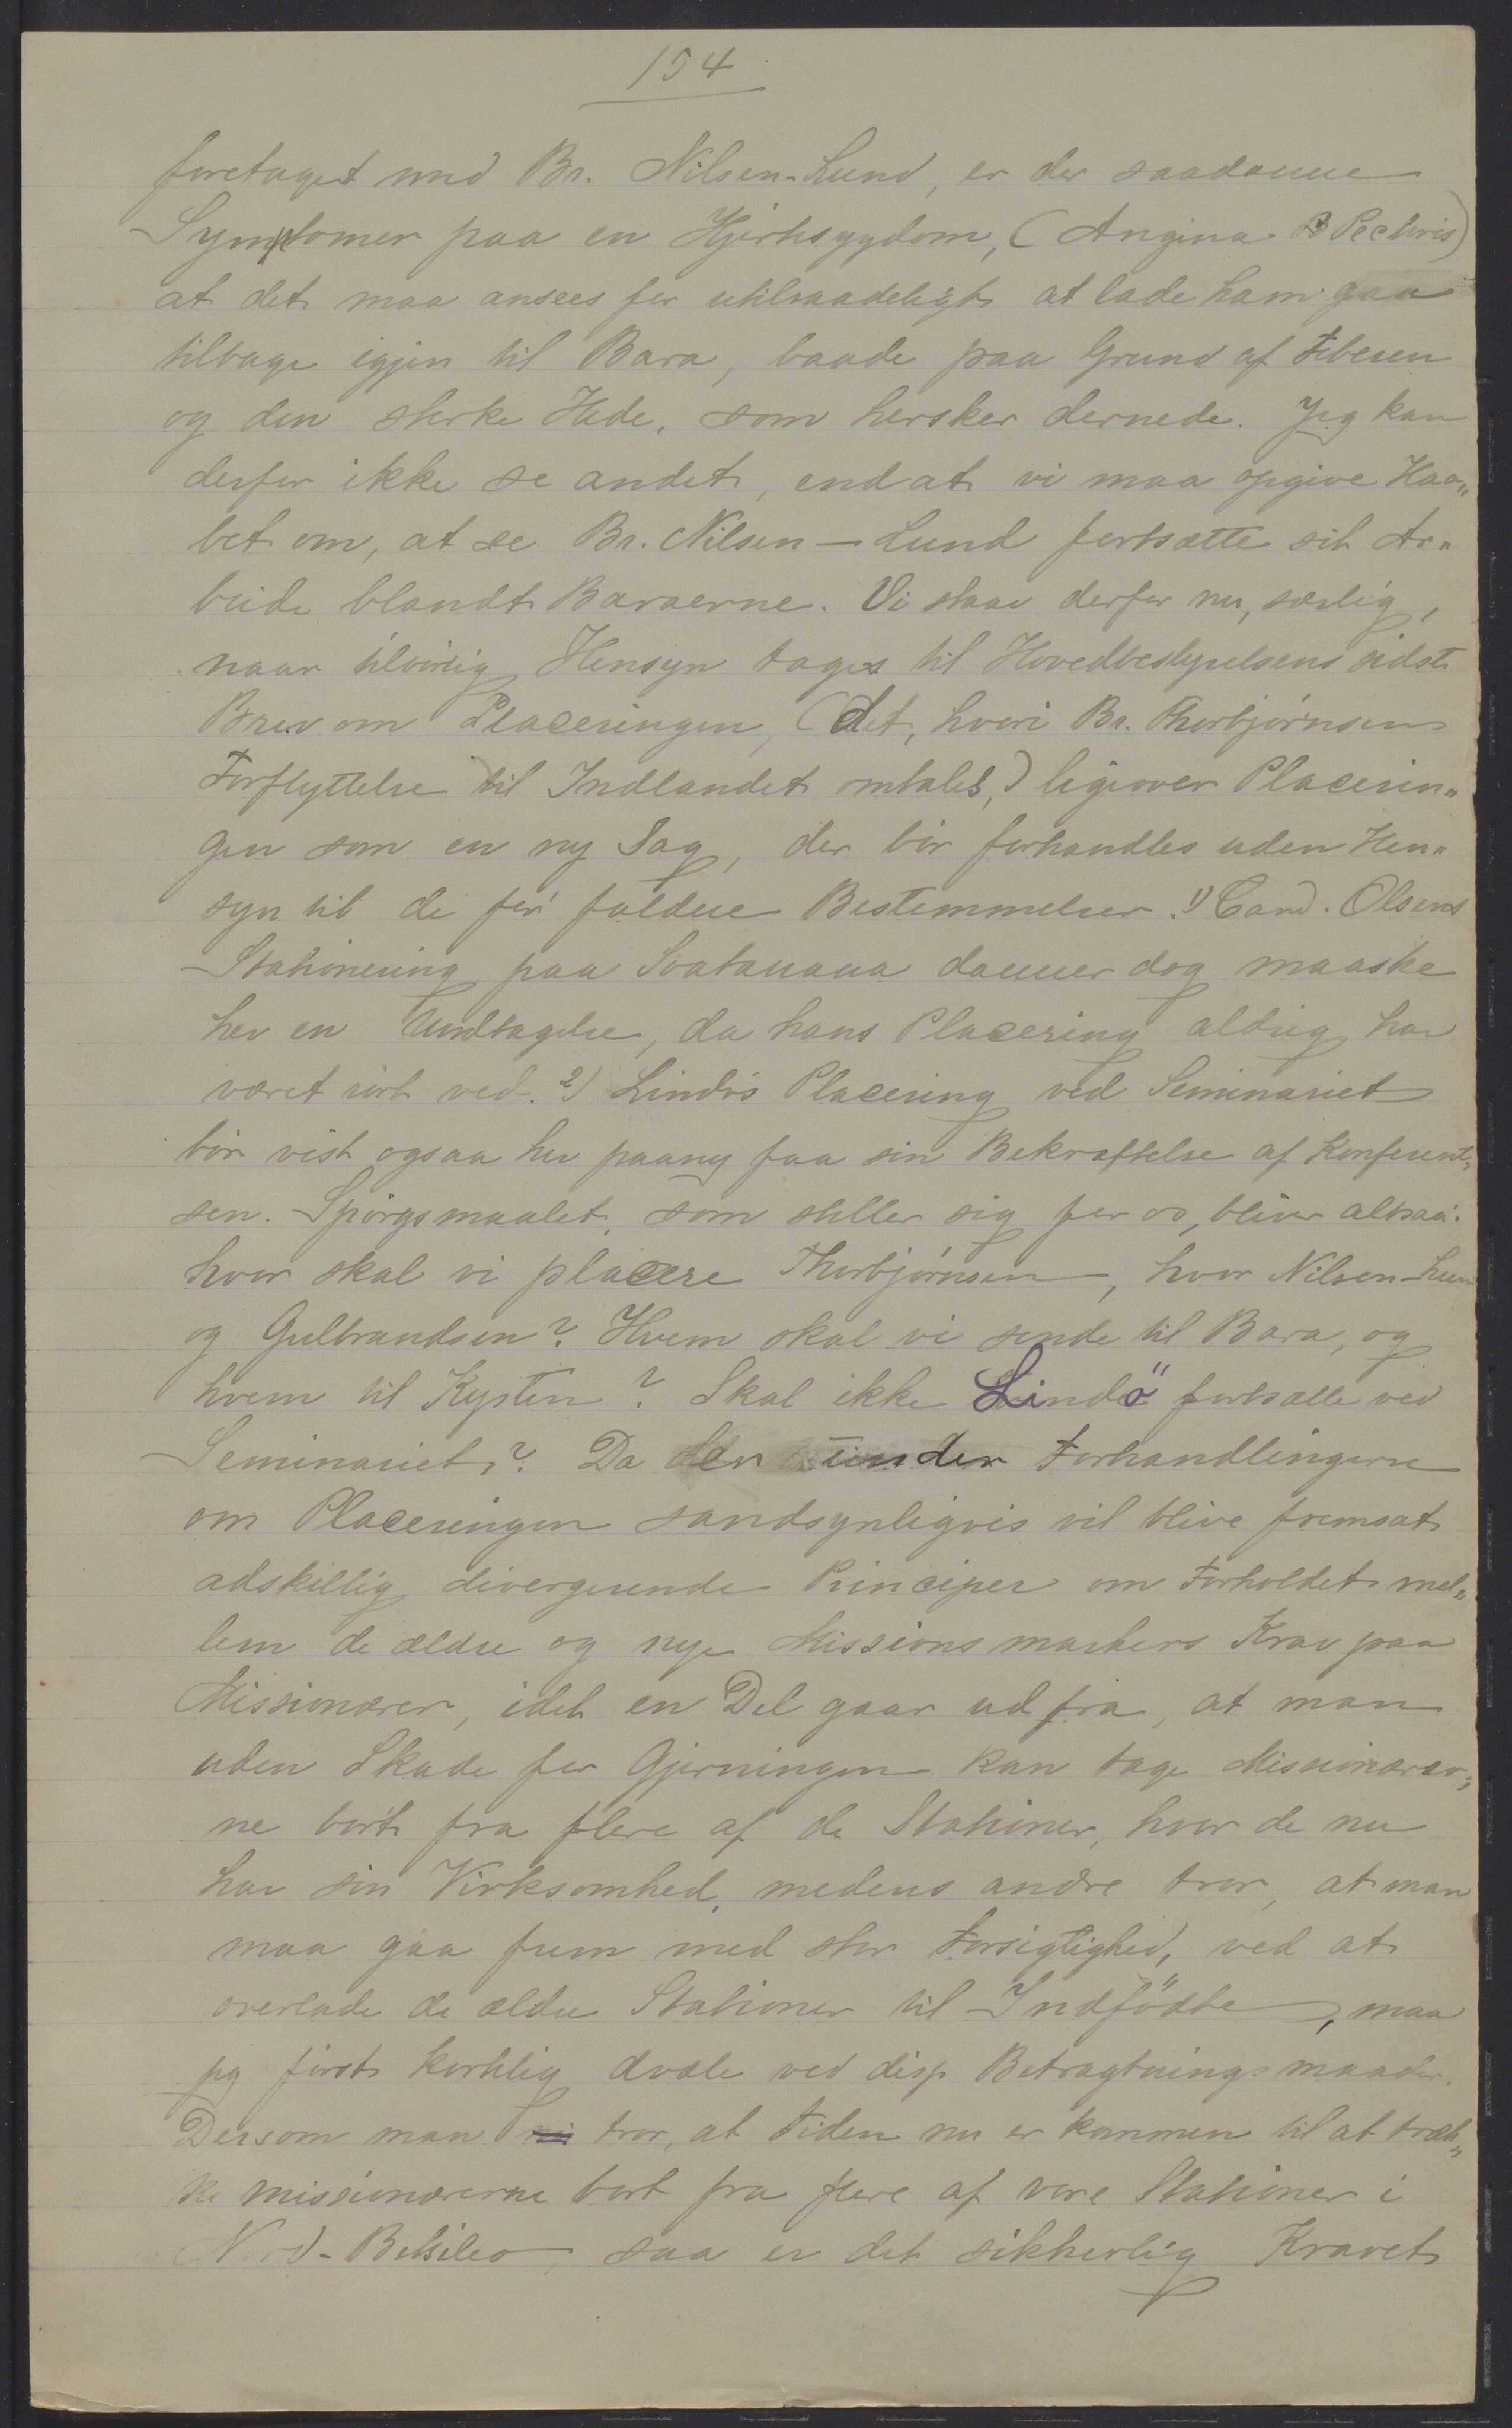 154
foretaget med Br. Nilsen-Lund, er der saadanne
Symptomer paa en Hjertesygdom, (Angina Pectoris)
at det maa ansees for utilraadeligt at lade ham gaa
tilbage igjen til Bara, baade paa Grund af Feberen
og den sterke Hede, som hersker dernede. Jeg kan
derfor ikke se andet, end at vi maa opgive Haa„
bet om, at se Br. Nilsen-Lund fortsætte sit Ar„
beide blandt Baraerne. Vi staar derfor nu, særlig,
naar tilbørlig Hensyn tages til Hovedbestyrelsens sidste
Brev om Placeringen, (det, hvori Br. Thorbjørnsens
Forflyttelse til Indlandet omtales,) ligeover Placerin„
gen som en ny Sag, der bør forhandles uden Hen„
syn til de før fældede Bestemmelser. 1) Cand. Olsens
Stationering paa Soatanana danner dog maaske
her en Undtagelse, da hans Placering aldrig har
været rørt ved. 2) Lindøs Placering ved Seminariet
bør vist ogsaa her paany faa sin Bekræftelse af Konferent„
sen. Spørgsmaalet, som stiller sig for os, bliver altsaa:
hvor skal vi placere Thorbjørnsen, hvor Nilsen-Lund
og Gulbrandsen? Hvem skal vi sende til Bara, og
hvem til Kysten? Skal ikke Lindö fortsætte ved
Seminariet? Da der under Forhandlingerne
om Placeringen sandsynligvis vil blive fremsat
adskillig divergerende Principer om Forholdet mel„
lem de ældre og nye Missionsmarkers Krav paa
Missionærer, idet en Del gaar ud fra, at man
uden Skade for Gjerningen kan tage Missionærer„
ne bort fra flere af de Stationer, hvor de nu
har sin Virksomhed, medens andre tror, at man
maa gaa frem med stor Forsigtighed, ved at
overlade de ældre Stationer til Indfödte, maa
jeg først kortelig dvæle ved disse Betragtningsmaader.
Dersom man tror, at tiden nu er kommen til at træk„
ke missionærerne bort fra flere af vore Stationer i
Nord-Betsileo, saa er det sikkerlig Kravet